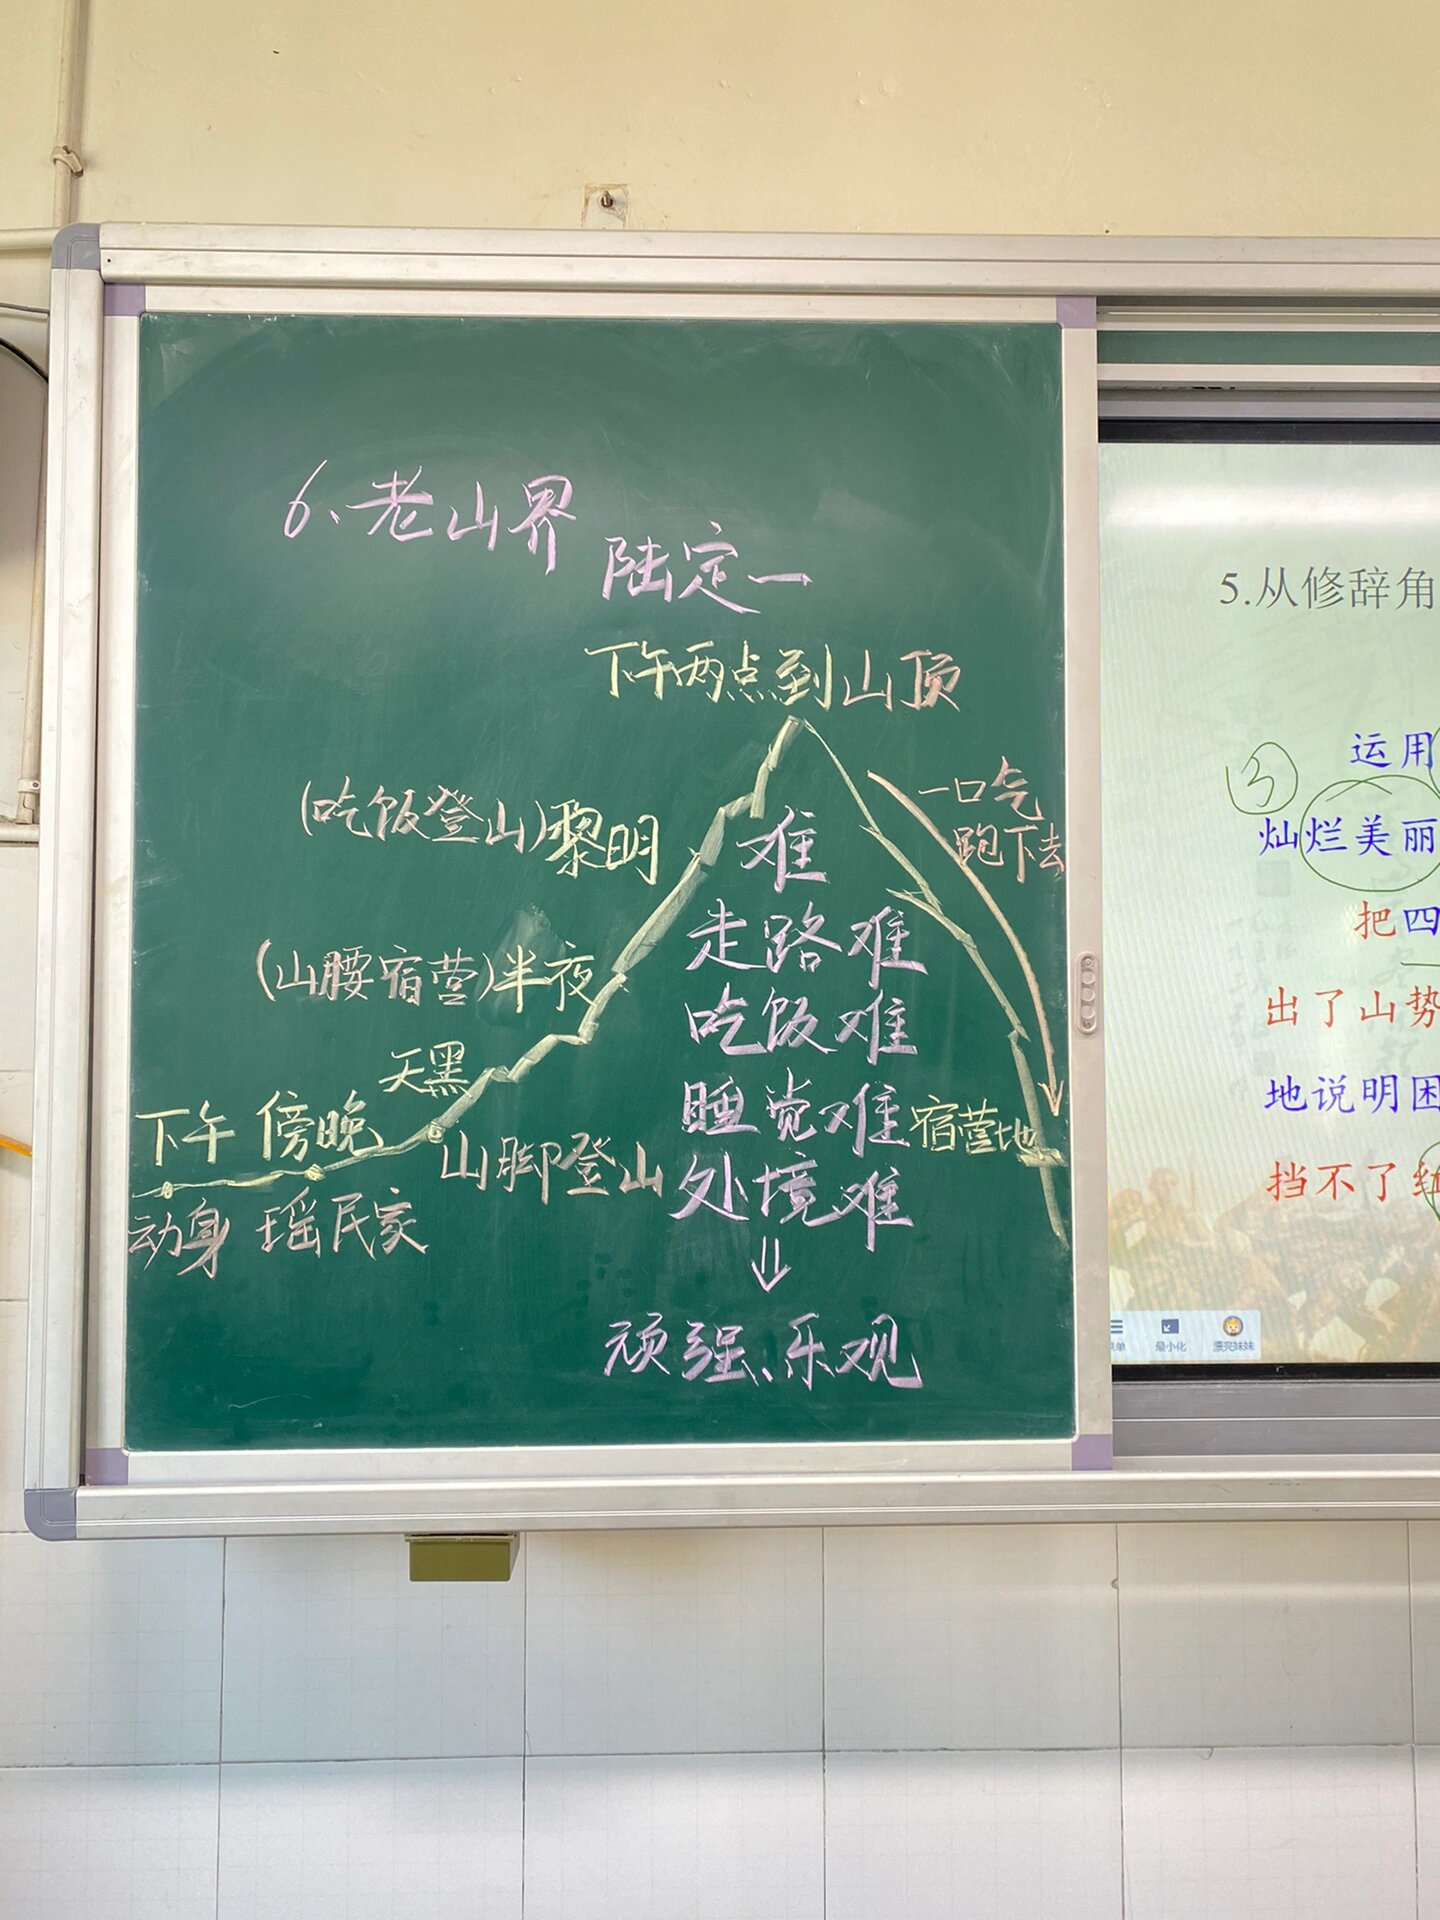 6、老山界
陆定一
下午两点到山顶
(吃饭登山)黎明
一口气
跑下去
难
走路难
(山腰宿营)半夜
吃饭难
天黑
睡觉难
宿营地
下午
傍晚
山脚登山
处境难
动身
瑶民家
⇓
顽强、乐观
5.从修辞角
③
运用
灿烂美丽
把四
出了山势
地说明困
挡不了红
最小化
漂亮妹妹